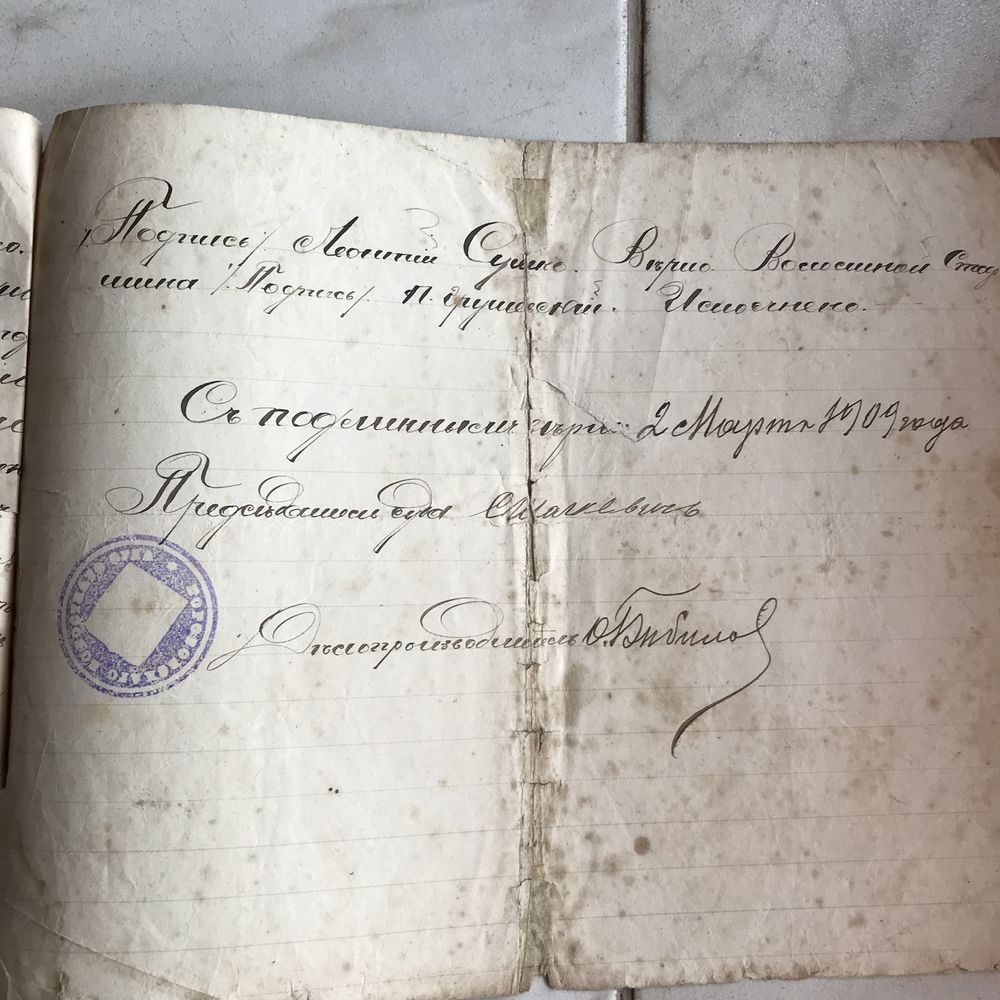 /Подпись/. Леонтій Сушко. Вѣрно. Волостной Стар
шина /Подпись/. П. Грушевскій. Исполнено.
Съ подлиннымъ вѣрно 2 Марта 1909 года
Предсѣдатель суда
Дѣлопроизводитель О. Бибилов